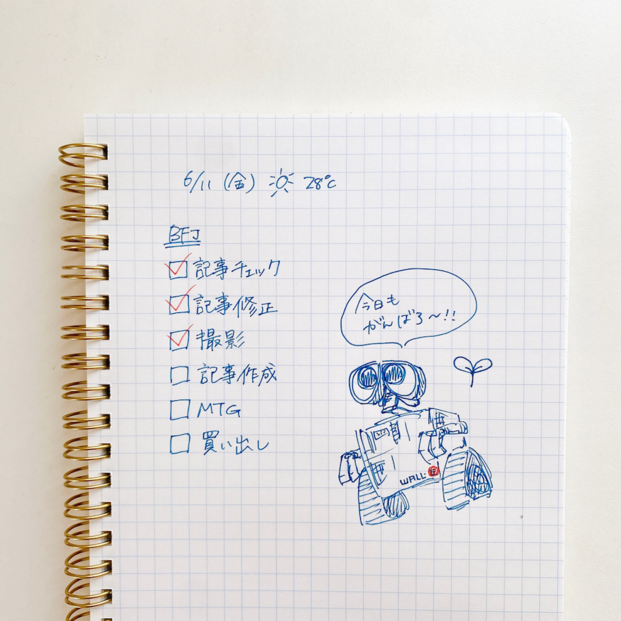 6/11 (金) 28℃
BFJ
記事チェック
記事修正
撮影
記事作成
MTG
買い出し
今日も
がんばろ〜!!
WALL·E